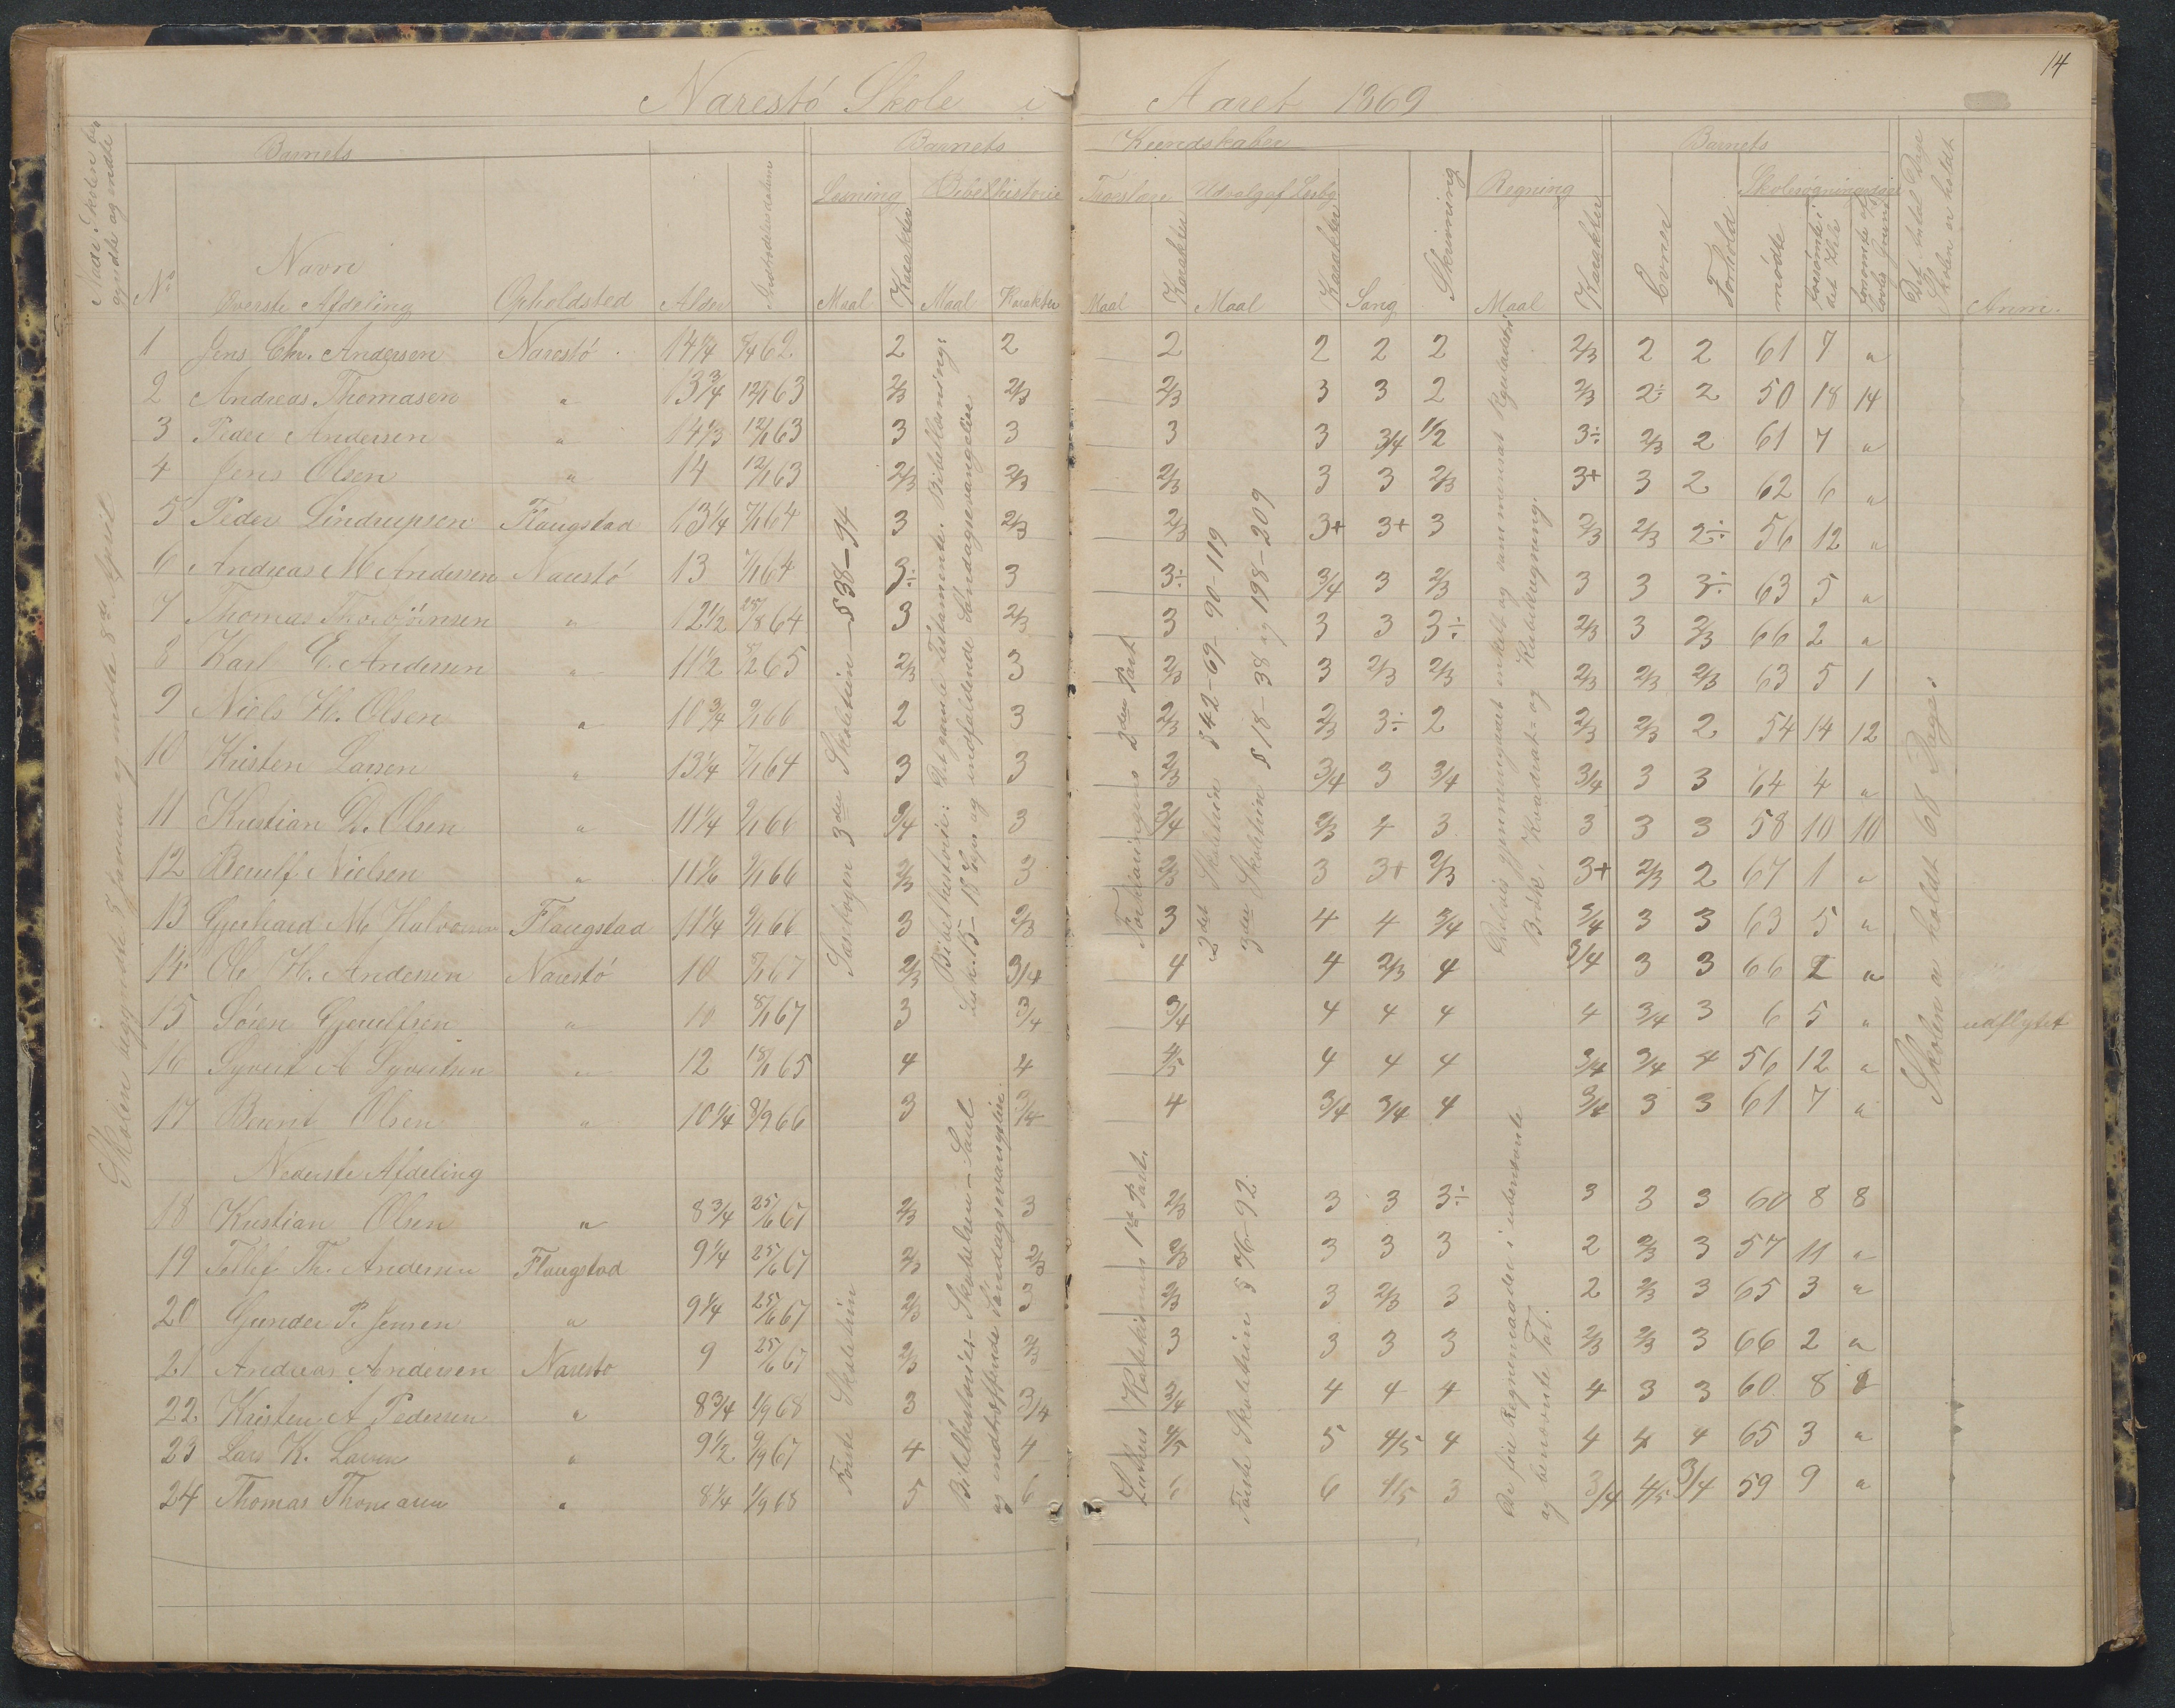 14
Narestö Skole i Aaret 1869
Barnets Barnets Kundskaber Barnets
Naar Skolen begyndte og endte
Læsning Bibelhistorie Troeslære Udvalg af Læsbg. Regning Skolesøgningsdage
Det Antal Dage Skolen er holdt
No Navn Opholdsted Alder Indtrædelsesdatum Maal Karakter Maal Karakter Maal Karakter Maal Karakter Sang Skrivning Maal Karakter Evner Forhold mødte forsømte i det Hele forsømte af lovlig Grund Anm.
Øverste Afdeling
1 Jens Chr. Andersen Narestö 14 1/4 7/4 62 2 2 2 2 2 2 2/3 2 2 61 7 "
2 Andreas Thomasen " 13 3/4 12/1 63 2/3 2/3 2/3 3 3 2 2/3 2÷ 2 50 18 14
3 Peder Andersen " 14 1/3 12/1 63 3 3 3 3 3/4 1/2 3÷ 2/3 2 61 7 "
4 Jens Olsen " 14 12/1 63 2/3 2/3 2/3 3 3 2/3 3+ 3 2 62 6 "
5 Peder Lindrupsen Flaugstad 13 1/4 7/1 64 3 2/3 2/3 3+ 3+ 3 2/3 2/3 2÷ 56 12 "
6 Andreas M Andersen Narestö 13 7/1 64 3÷ 3 3÷ 3/4 3 2/3 3 3 3÷ 63 5 "
7 Thomas Thorbjörnsen " 12 1/2 25/8 64 3 2/3 3 3 3 3÷ 2/3 3 2/3 66 2 "
8 Karl E. Andersen " 11 1/2 5/2 65 2/3 3 2/3 3 2/3 2/3 2/3 2/3 2/3 63 5 1
9 Niels H. Olsen " 10 3/4 9/1 66 2 3 2/3 2/3 3÷ 2 2/3 2/3 2 54 14 12
10 Kristen Larsen " 13 1/4 7/1 64 3 3 2/3 3/4 3 3/4 3/4 3 3 64 4 "
11 Kristian D. Olsen " 11 1/4 9/1 66 3/4 3 3/4 2/3 4 3 3 3 3 58 10 10
12 Berulf Nielsen " 11 1/6 9/1 66 2/3 3 2/3 3 3+ 2/3 3+ 2/3 2 67 1 "
13 Gjerhard M Halvorsen Flaugstad 11 1/4 9/1 66 3 2/3 3 4 4 3/4 3/4 3 3 63 5 "
14 Ole H. Andersen Narestö 10 8/1 67 2/3 3/4 4 4 2/3 4 3/4 3 3 66 2 "
15 Sören Gjerulfsen " 10 8/1 67 3 3/4 3/4 4 4 4 4 3/4 3 6 5 " udflyttet
16 Syvert A Syvertsen " 12 18/1 65 4 4 4/5 4 4 4 3/4 3/4 4 56 12 "
17 Bernt Olsen " 10 1/4 8/9 66 3 3/4 4 3/4 3/4 4 3/4 3 3 61 7 "
Nederste Afdeling
18 Kristian Olsen " 8 3/4 25/6 67 2/3 3 2/3 3 3 3÷ 3 3 3 60 8 8
19 Tellef Th. Andersen Flaugstad 9 1/4 25/6 67 2/3 2/3 2/3 3 3 3 2 2/3 3 57 11 "
20 Gunder P. Jensen " 9 1/4 25/6 67 2/3 3 2/3 3 2/3 3 2 2/3 3 65 3 "
21 Andreas Andersen Narestö 9 25/6 67 2/3 2/3 3 3 3 3 2/3 2/3 3 66 2 "
22. Kristen A Pedersen " 8 3/4 1/9 68 3 3/4 3/4 4 4 4 4 3 3 60 8 8
23 Lars K. Larsen " 9 1/2 9/9 67 4 4 4/5 5 4/5 4 4 4 4 65 3 "
24 Thomas Thomasen " 8 1/4 1/9 68 5 6 6 6 4/5 3 3/4 4/5 3/4 59 9 "
Skolen begyndte 8 Januar og endte 8de April
Læsebogen 3die Skoletrin § 38-94
Første Skoletrin
Bibelhistorie: Det gamle Testamente. Bibellæsning:
Luk. 15-18 Kap. og indfaldende Söndagsevangelier
Bibelhistorie: Skabelsen - Saul
og indtræffende Söndagsevangelier
Forklaringens 2den Part
Luthers Katekismus 1ste Part.
2det Skoletrin § 42-69- 90-119
3die Skoletrin § 18-38 og 198-209
Første Skoletrin § 76-92.
Delvis gjennemgaaet enkelt og sammensat Reguladetri
Brök, Kvadrat- og Kubikregning.
De fire Regnemaader i ubenævnte
og benævnte Tal.
Skolen er holdt 68 Dage